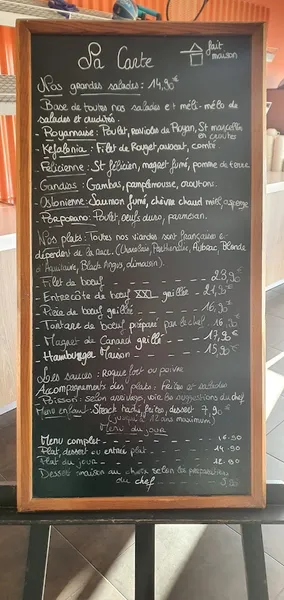 La Carte
fait
maison
Nos grandes salades : 14,90€
Base de toutes nos salades et méli-mélo de
salades et crudités.
- Royannaise : Poulet, ravioles de Royan, St marcellin
en croûtes
- Kefalonia : Filet de Rouget, avocat, comté
- Félicienne : St félicien, magret fumé, pomme de terre
- Gandois : Gambas, pamplemousse, croutons.
- Oslonienne : Saumon fumé, chèvre chaud miel, asperge
- Poulet, oeufs durs, parmesan.
Nos plats : Toutes nos viandes sont françaises et
dépendent de la race. (Charolais, Parthenaise, Aubrac, Blonde
d'Aquitaine, Black Angus, Limousin).
Filet de boeuf 23,90€
Entrecôte de boeuf XXL grillée 21,90€
Pièce de boeuf grillée 16,90€
Tartare de boeuf préparé par le chef 16,90
Magret de Canard grillé 17,90€
- Hamburger Maison 15,90€
Les sauces : Roquefort ou poivre
Accompagnements des plats : Frites et salades
- Poisson : selon arrivages, voir les suggestions du chef
Menu enfant : Steack haché, frites, dessert 7,90€
(jusqu'à 12 ans maximum)
Menu du jour
Menu complet 16.90
Plat, dessert ou entrée plat 14.90
Plat du jour 12.90
Dessert maison au choix selon les préparations
du chef 5,90